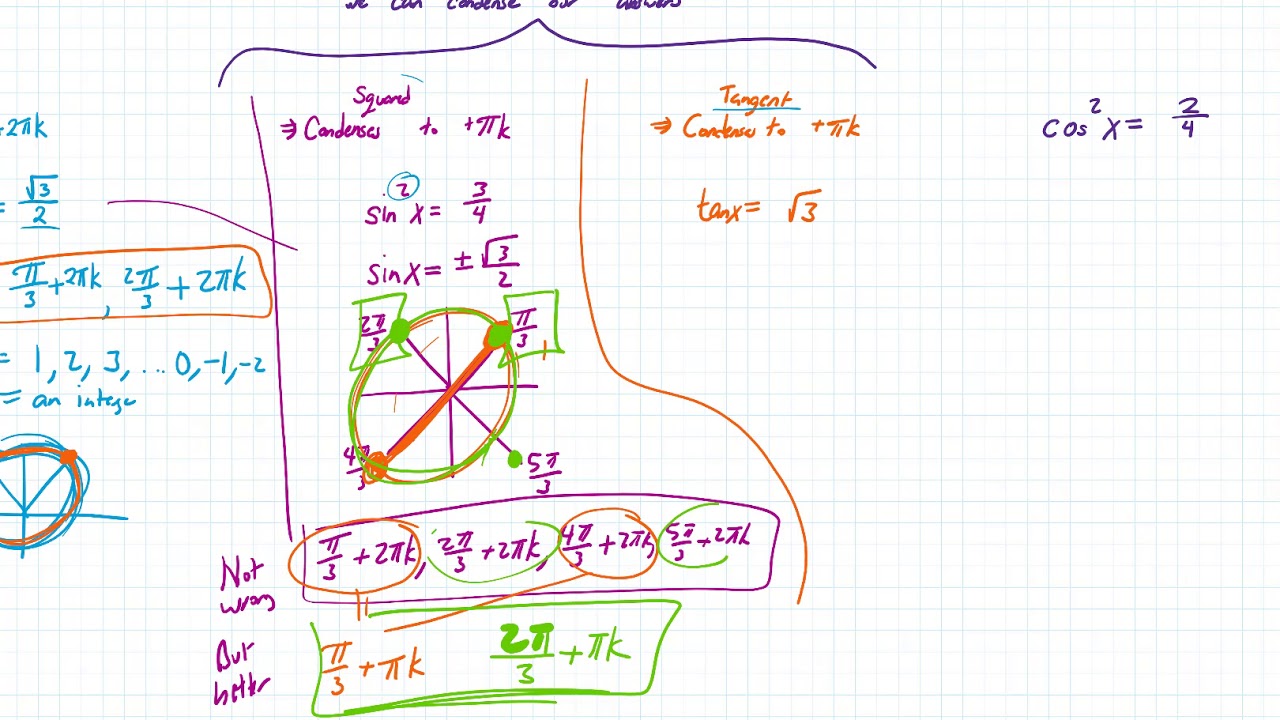 we can condense our answers
+2πk
= √3/2
π/3 + 2πk, 2π/3 + 2πk
= 1, 2, 3, ... 0, -1, -2
= an integer
Squared
⇒ Condenses to +πk
sin² x = 3/4
sin x = ± √3/2
2π/3
π/3
4π/3
5π/3
Not wrong
π/3 + 2πk, 2π/3 + 2πk, 4π/3 + 2πk, 5π/3 + 2πk
But better
π/3 + πk
2π/3 + πk
Tangent
⇒ Condenses to +πk
tan x = √3
cos² x = 2/4